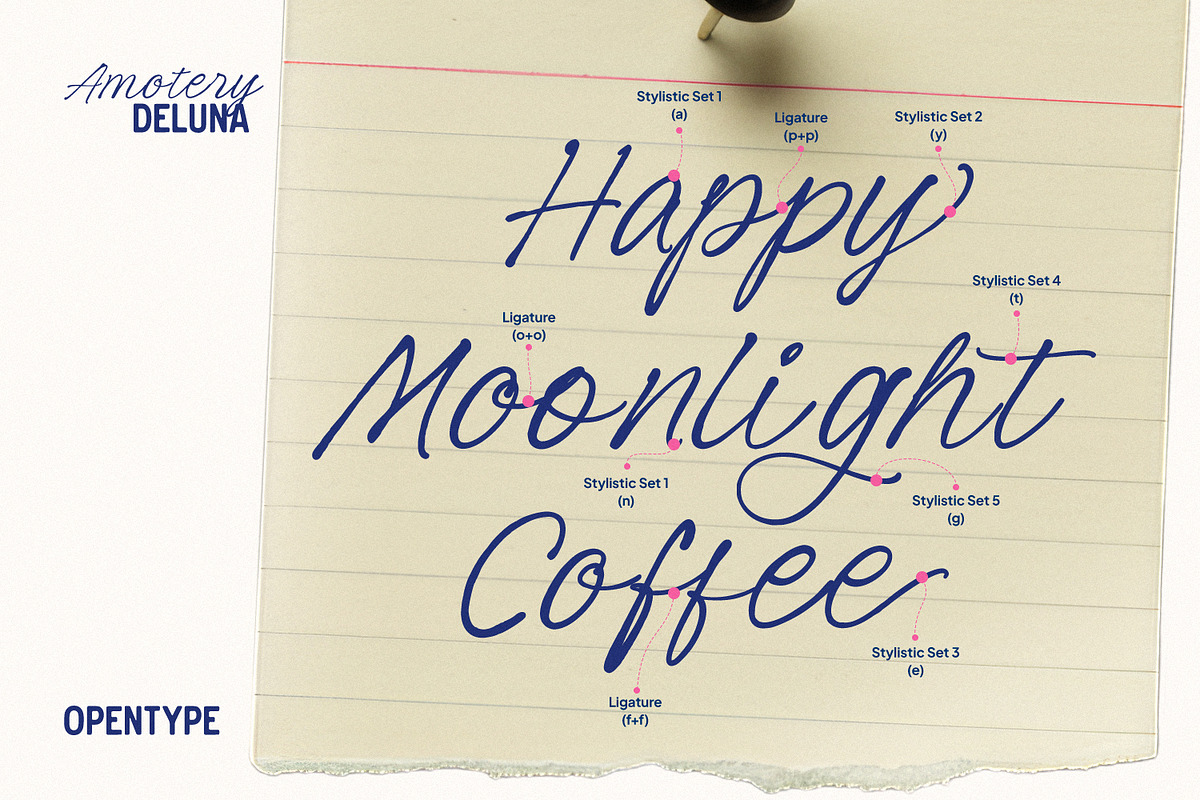 Amotery
DELUNA
Stylistic Set 1
(a)
Ligature
(p+p)
Stylistic Set 2
(y)
Happy
Stylistic Set 4
(t)
Ligature
(o+o)
Moonlight
Stylistic Set 1
(n)
Stylistic Set 5
(g)
Coffee
Stylistic Set 3
(e)
Ligature
(f+f)
OPENTYPE